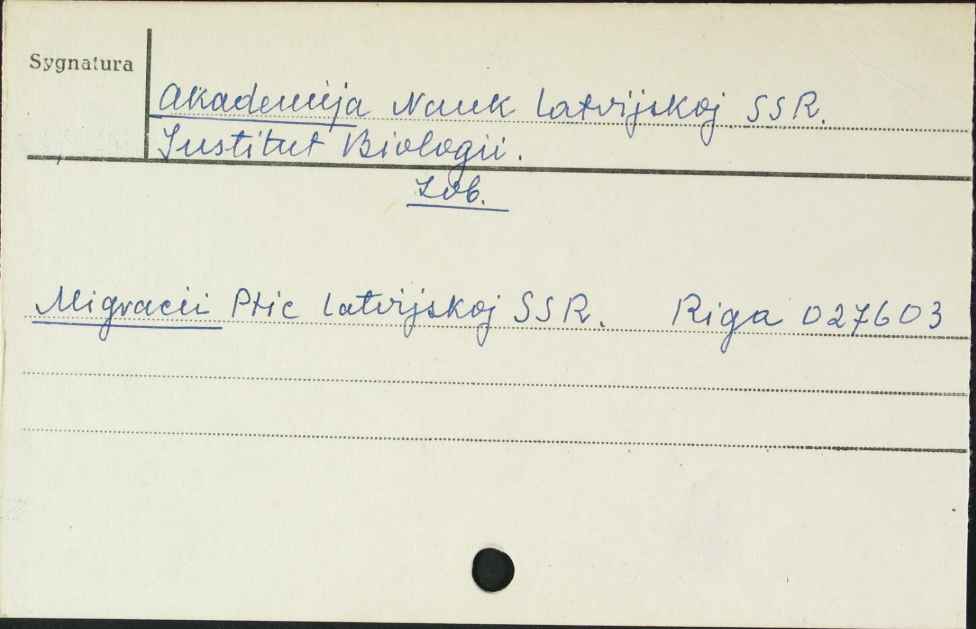 Sygnatura
Akademija Nauk Latvijskoj SSR.
Institut Biologii.
Zob.
Migracii Ptic Latvijskoj SSR. Riga 027603